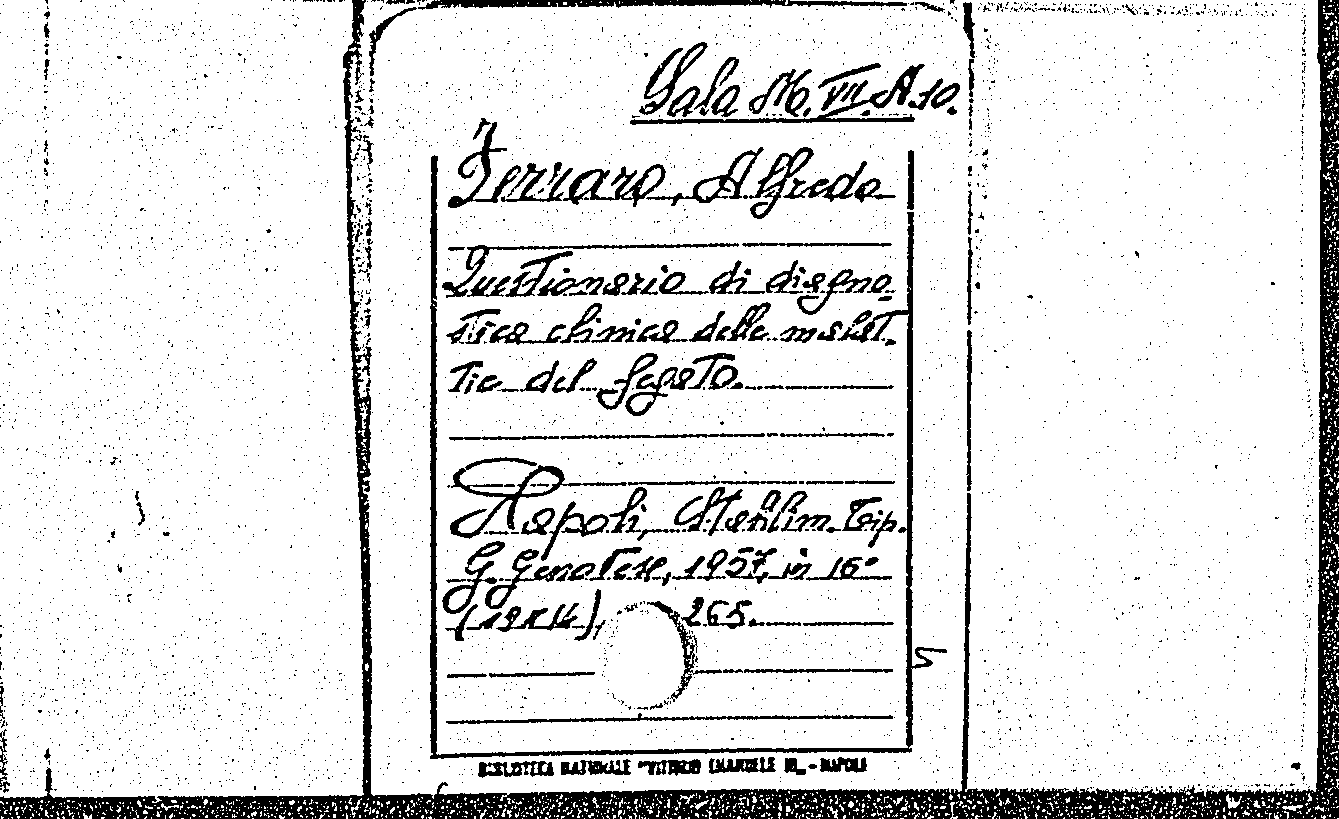 Sala M. VII. A. 10.
Ferraro, Alfredo
Questionario di diagno-
stica clinica delle malat-
tie del fegato.
Napoli, Stabilim. Tip.
G. Genovese, 1957, in 16°
(19x14), 265.
5
BIBLIOTECA NAZIONALE "VITTORIO EMANUELE III" - NAPOLI